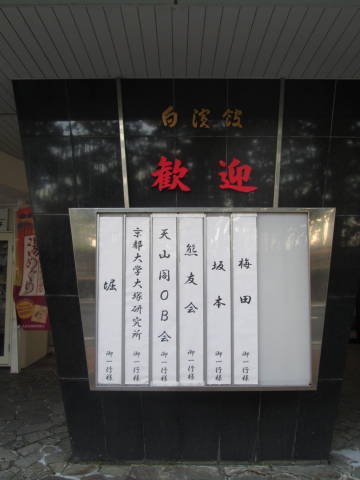 白濱館
歓迎
梅田 御一行様
坂本 御一行様
熊友会 御一行様
天山閣OB会 御一行様
京都大学大塚研究所 御一行様
堀 御一行様